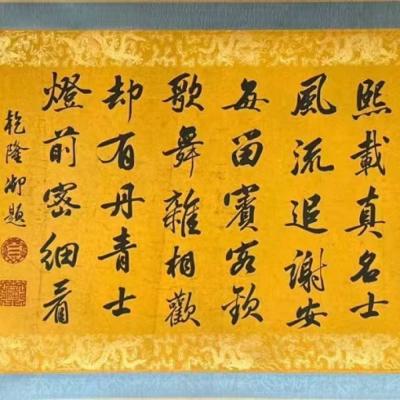 熙載真名士
風流追謝安
每留賓客飲
歌舞雜相歡
却有丹青士
燈前密細看
乾隆御題